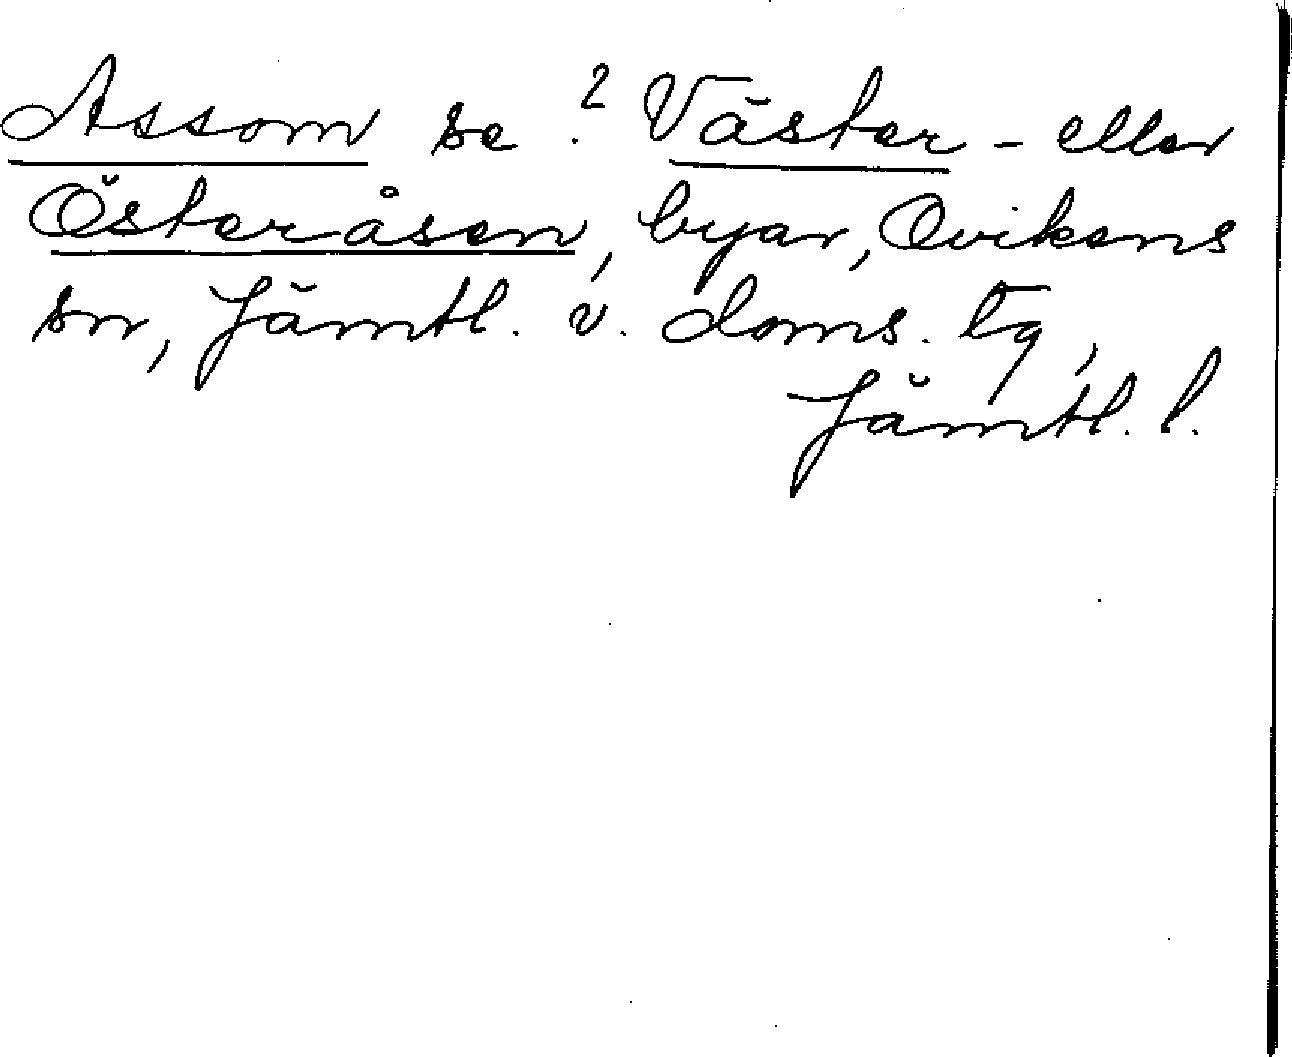 Assom se ? Väster- eller
Österåsen, byar, Ovikens
sn, Jämtl. v. doms. tg,
Jämtl. l.